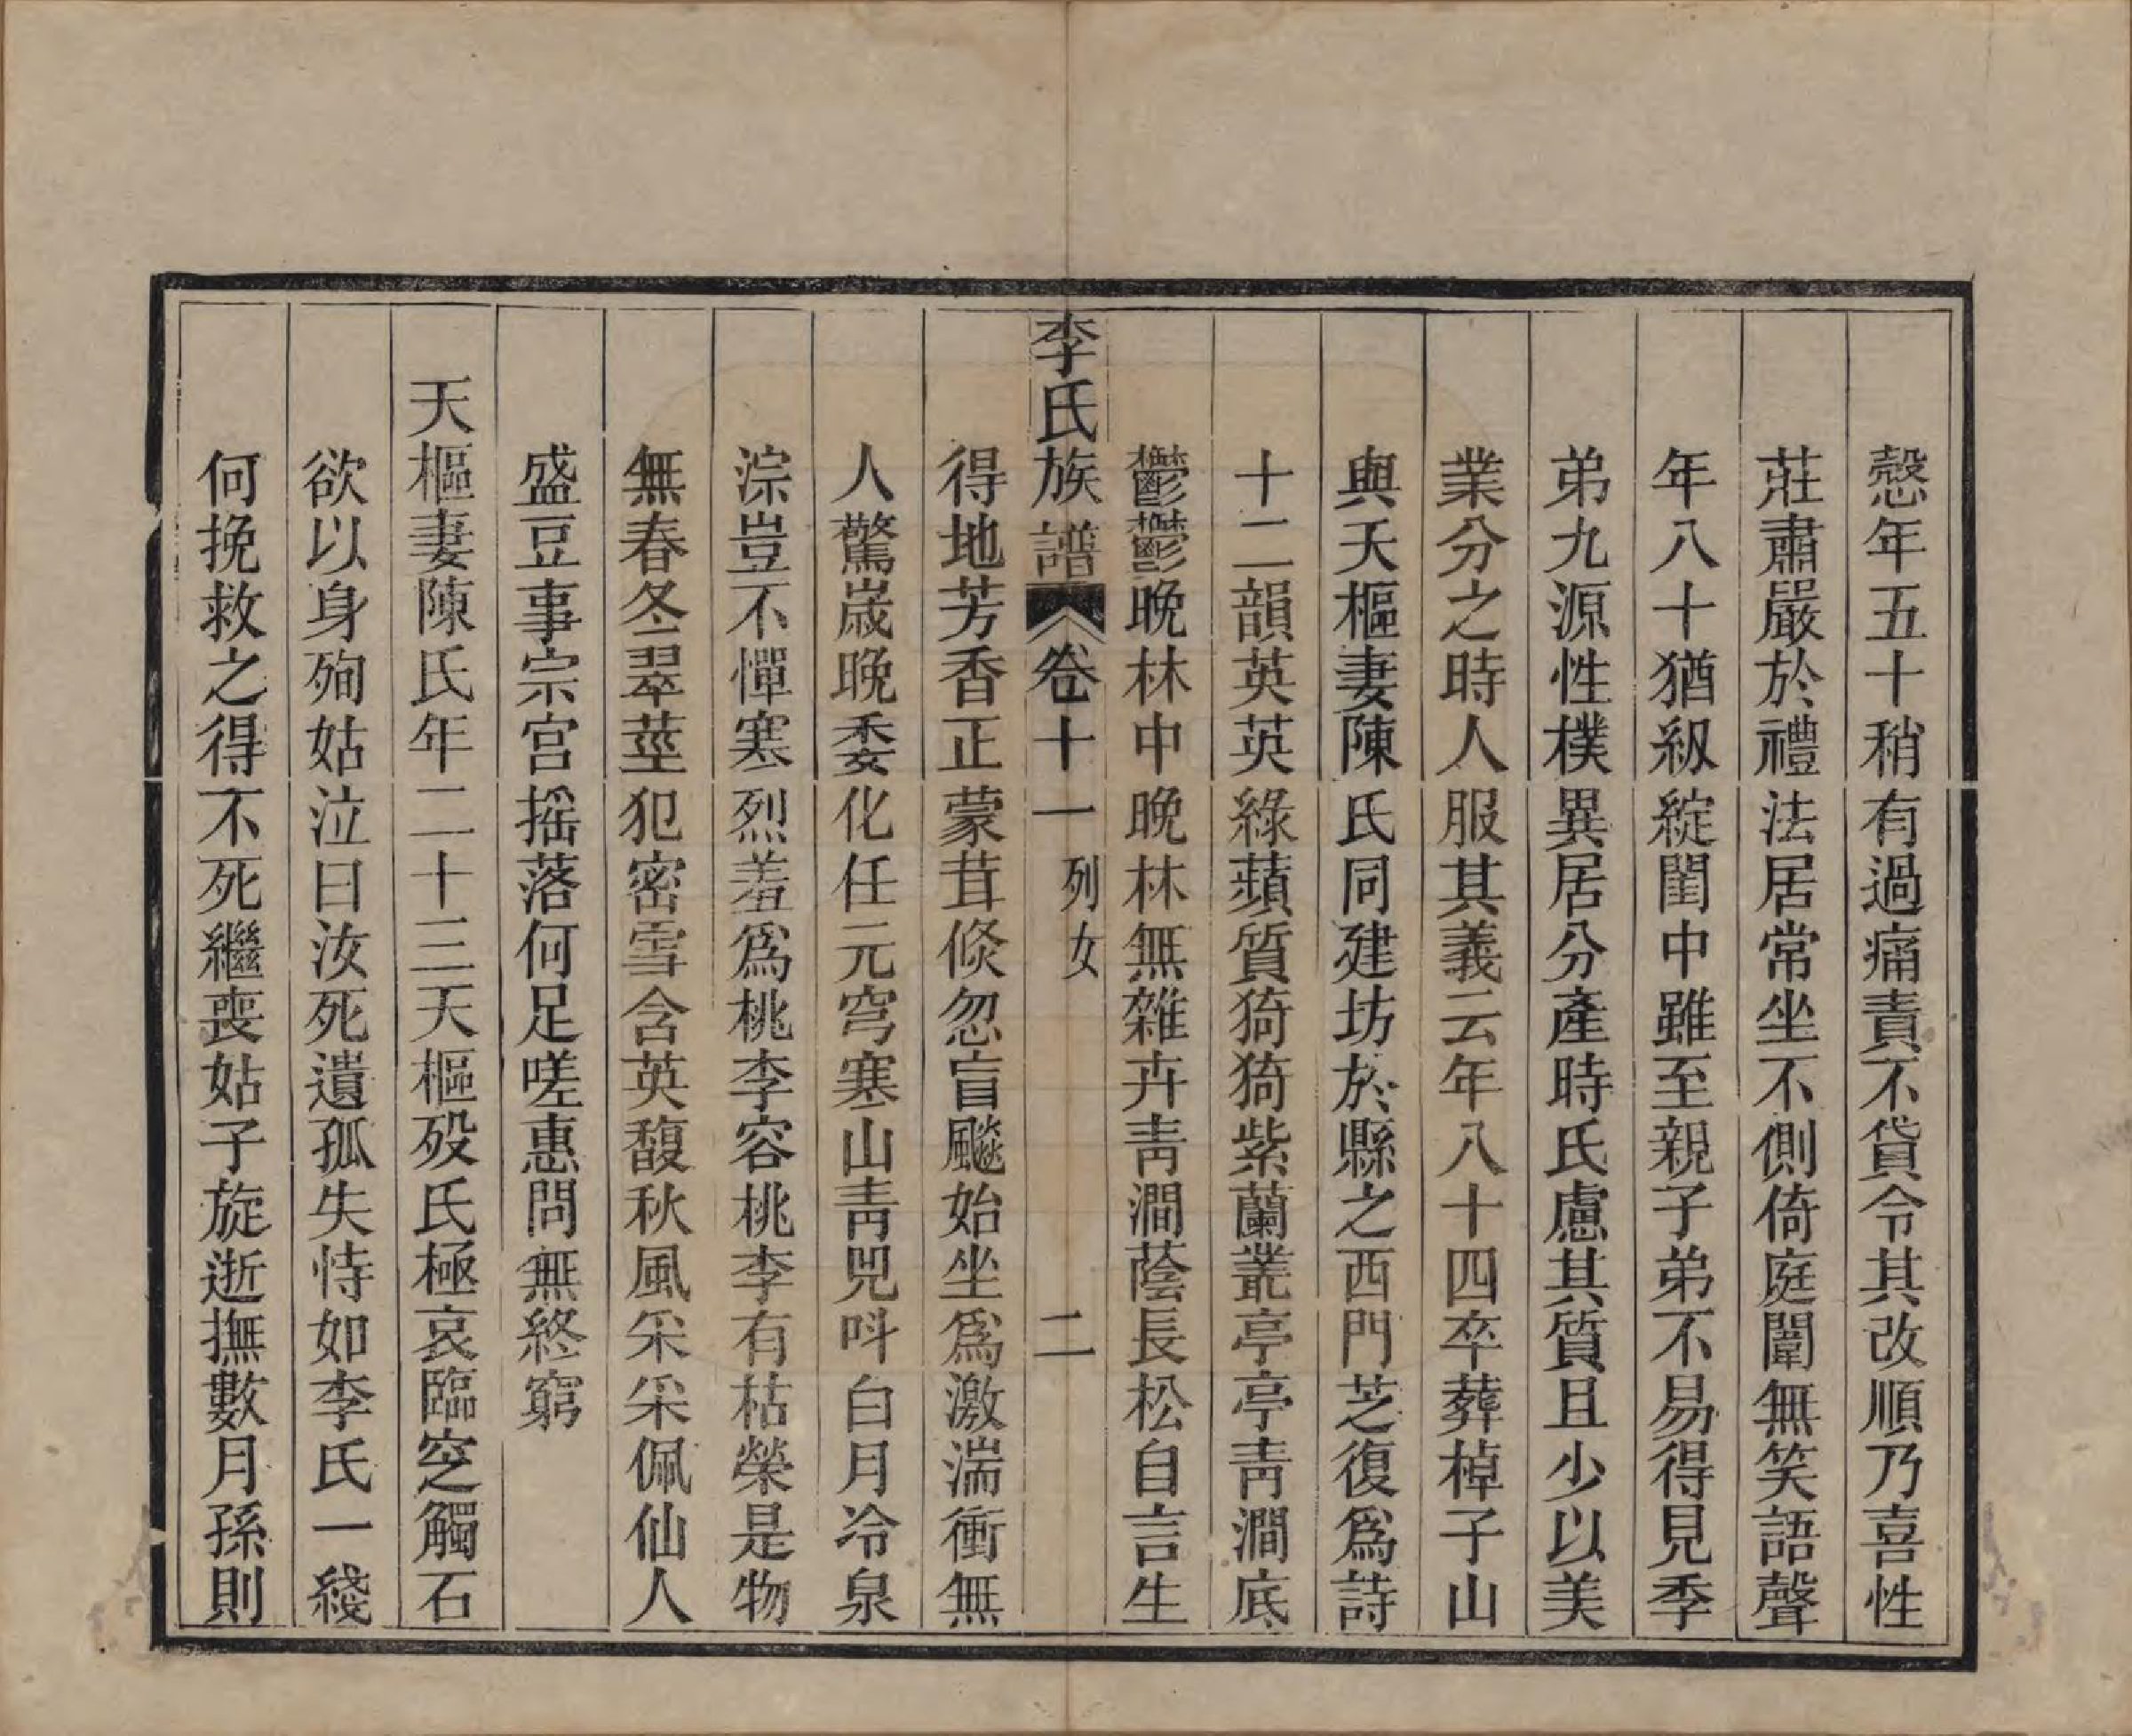 慤年五十稍有過痛責不貸令其改順乃喜性
莊肅嚴於禮法居常坐不側倚庭闈無笑語聲
年八十猶級綻閨中雖至親子弟不易得見季
弟九源性樸異居分產時氏慮其質且少以美
業分之時人服其義云年八十四卒葬棹子山
與天樞妻陳氏同建坊於縣之西門芝復爲詩
十二韻英英綠蘋質猗猗紫蘭叢亭亭青澗底
鬱鬱晚林中晚林無雜卉青澗蔭長松自言生
李氏族譜 卷十一 列女 二
得地芳香正蒙茸倐忽盲飈始坐爲激湍衝無
人驚歲晚委化任元穹寒山青兕呌白月冷泉
淙豈不憚寒烈羞爲桃李容桃李有枯榮是物
無春冬翠莖犯密雪含英馥秋風采采佩仙人
盛豆事宗宫摇落何足嗟惠問無終窮
天樞妻陳氏年二十三天樞歿氏極哀臨窆觸石
欲以身殉姑泣曰汝死遺孤失恃如李氏一綫
何挽救之得不死繼喪姑子旋逝撫數月孫則